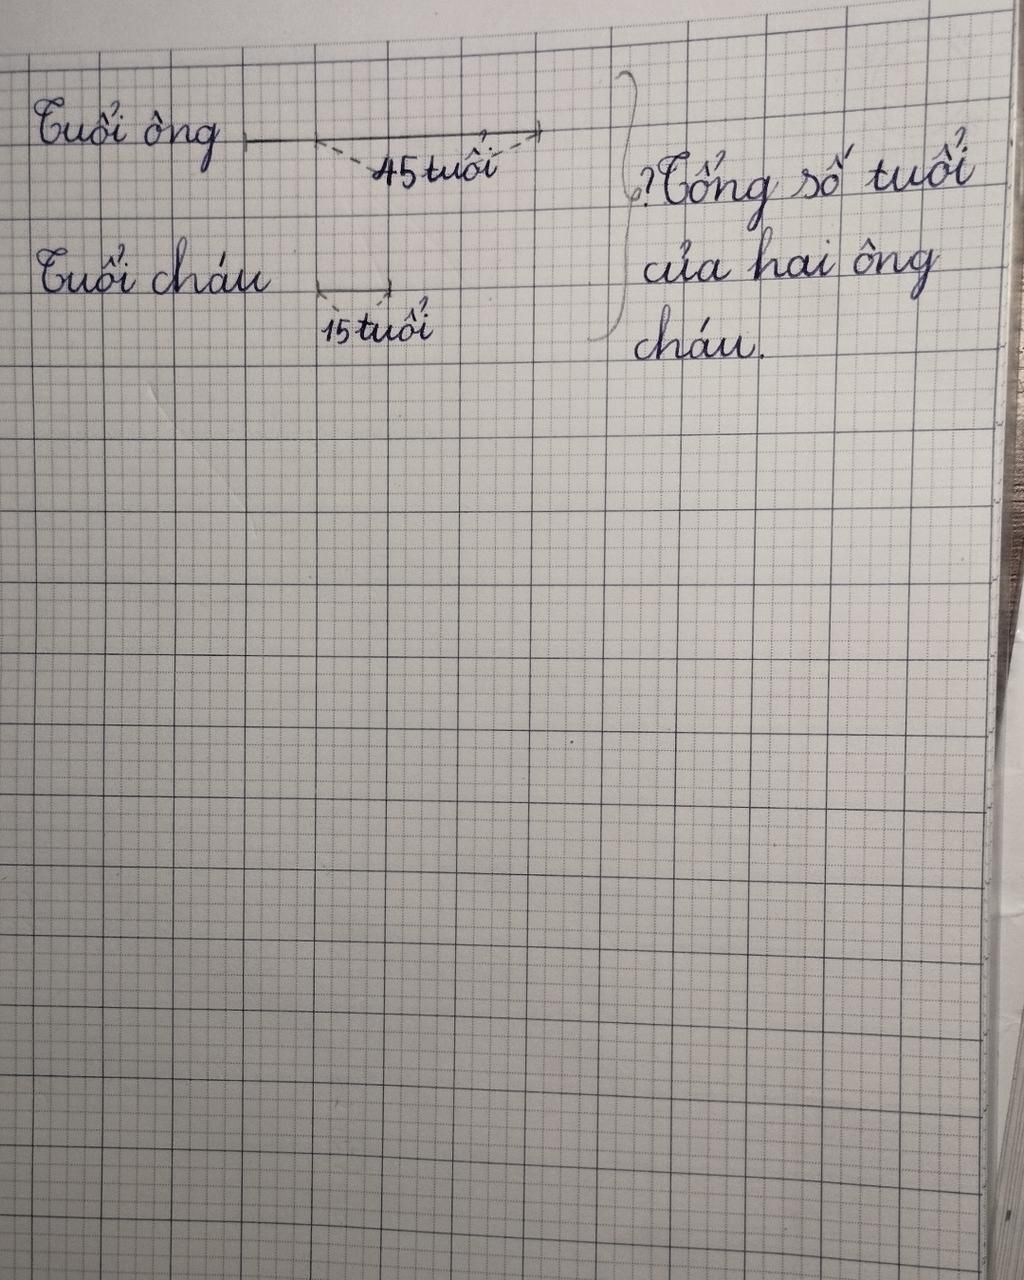 Tuổi ông
45 tuổi
Tuổi cháu
15 tuổi
? Tổng số tuổi
của hai ông
cháu.